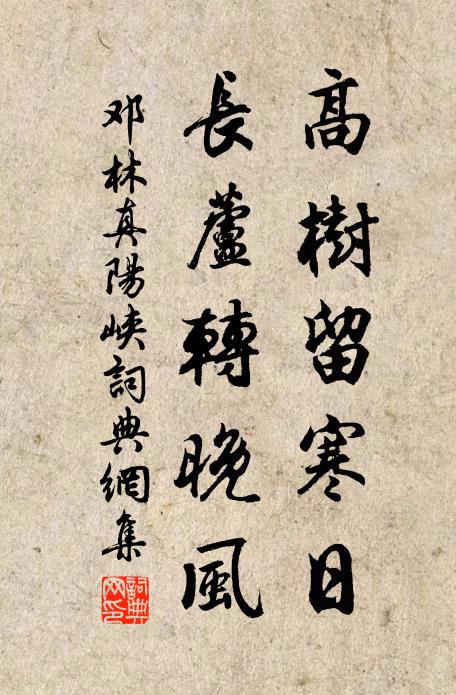 高樹留寒日
長蘆轉晚風
邓林真陽峽詞典網集
詞典網印